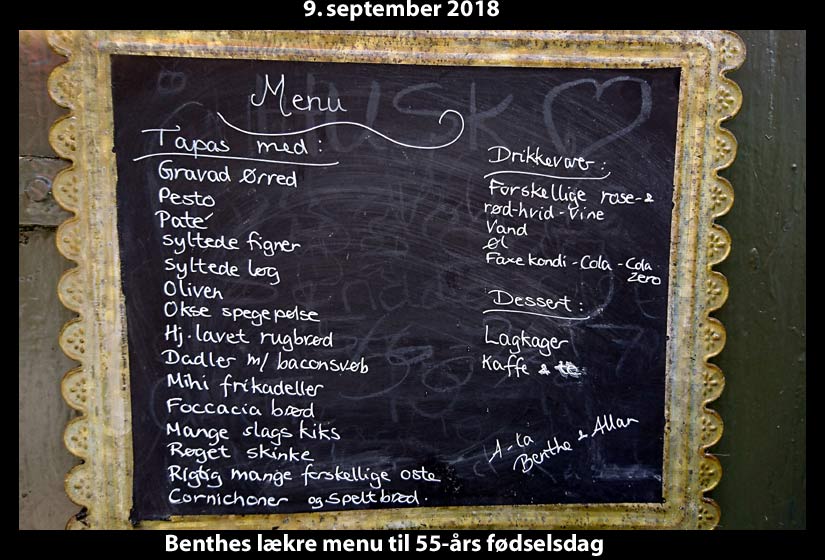 9. september 2018
Menu
Tapas med:
Gravad Ørred
Pesto
Paté
syltede figner
syltede løg
Oliven
Okse spegepølse
Hj. lavet rugbrød
Dadler m/ baconsvøb
Mini frikadeller
Foccacia brød
Mange slags kiks
Røget skinke
Rigtig mange forskellige oste
Cornichoner og speltbrød.
Drikkevarer:
Forskellige rose- &
rød-hvid-vine
Vand
Øl
Faxe kondi - Cola - Cola
Zero
Dessert:
Lagkager
Kaffe & te
A-la
Benthe & Allan
HUSK
Benthes lækre menu til 55-års fødselsdag